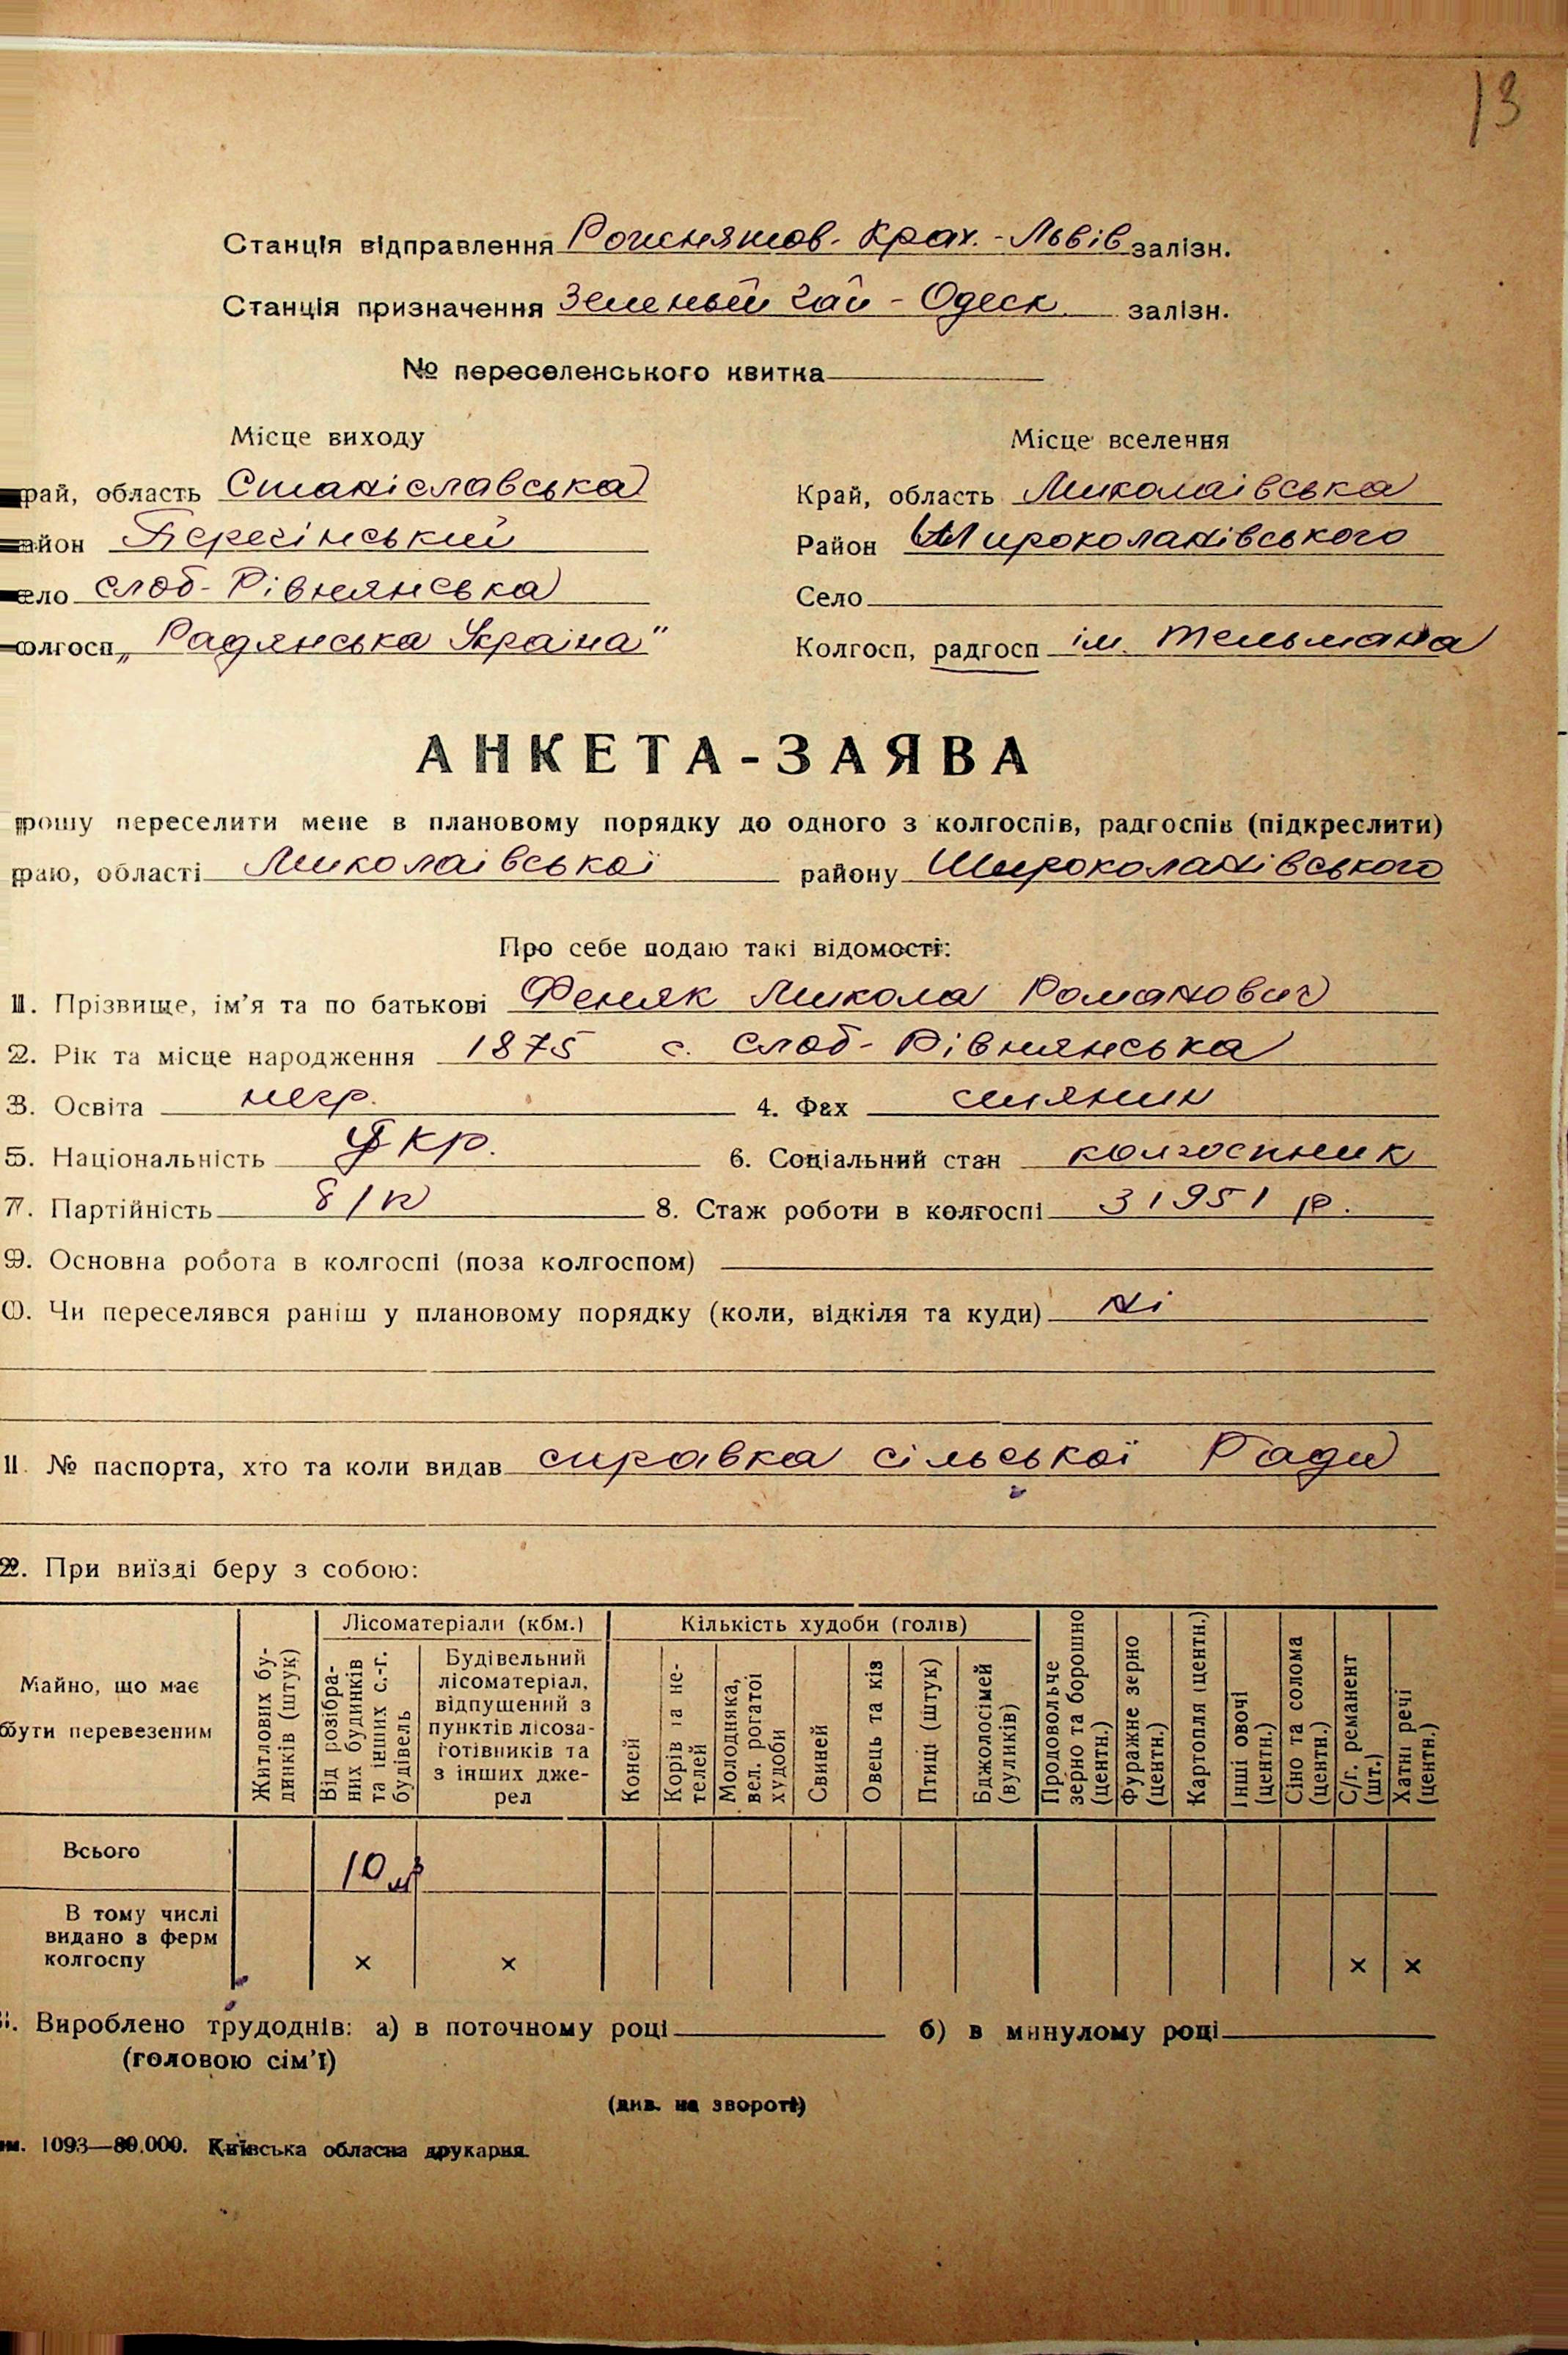 13
Станція відправлення Рожнятов-Крах.-Львів залізн.
Станція призначення Зеленый Гай - Одеск залізн.
№ переселенського квитка
Місце виходу Місце вселення
рай, область Станіславська Край, область Миколаівська
айон Перегінський Район Широколанівського
ело Слоб-Рівнянська Село
олгосп „Радянська Украіна" Колгосп, радгосп ім. Тельмана
АНКЕТА-ЗАЯВА
рошу переселити мене в плановому порядку до одного з колгоспів, радгоспів (підкреслити)
раю, області Миколаівської району Широколанівського
Про себе подаю такі відомості:
1. Прізвище, ім'я та по батькові Феняк Микола Романович
2. Рік та місце народження 1875 с. Слоб-Рівнянська
3. Освіта негр. 4. Фах
5. Національність Укр. 6. Соціальний стан колгоспник
7. Партійність б/п 8. Стаж роботи в колгоспі З 1951 р.
9. Основна робота в колгоспі (поза колгоспом)
0. Чи переселявся раніш у плановому порядку (коли, відкіля та куди) Ні
11. № паспорта, хто та коли видав справка сільської Ради
2. При виїзді беру з собою:
Майно, що має бути перевезеним
Житлових будинків (штук)
Лісоматеріали (кбм.)
Від розібраних будинків та інших с.-г. будівель
Будівельний лісоматеріал, відпущений з пунктів лісозаготівників та з інших джерел
Кількість худоби (голів)
Коней
Корів та нетелей
Молодняка, вел. рогатої худоби
Свиней
Овець та кіз
Птиці (штук)
Бджолосімей (вуликів)
Продовольче зерно та борошно (центн.)
Фуражне зерно (центн.)
Картопля (центн.)
Інші овочі (центн.)
Сіно та солома (центн.)
С/г. реманент (шт.)
Хатні речі (центн.)
Всього 10 м³
В тому числі видано з ферм колгоспу × × × ×
. Вироблено трудоднів: а) в поточному році б) в минулому році
(головою сім'ї)
(див. на звороті)
м. 1093—80.000. Київська обласна друкарня.